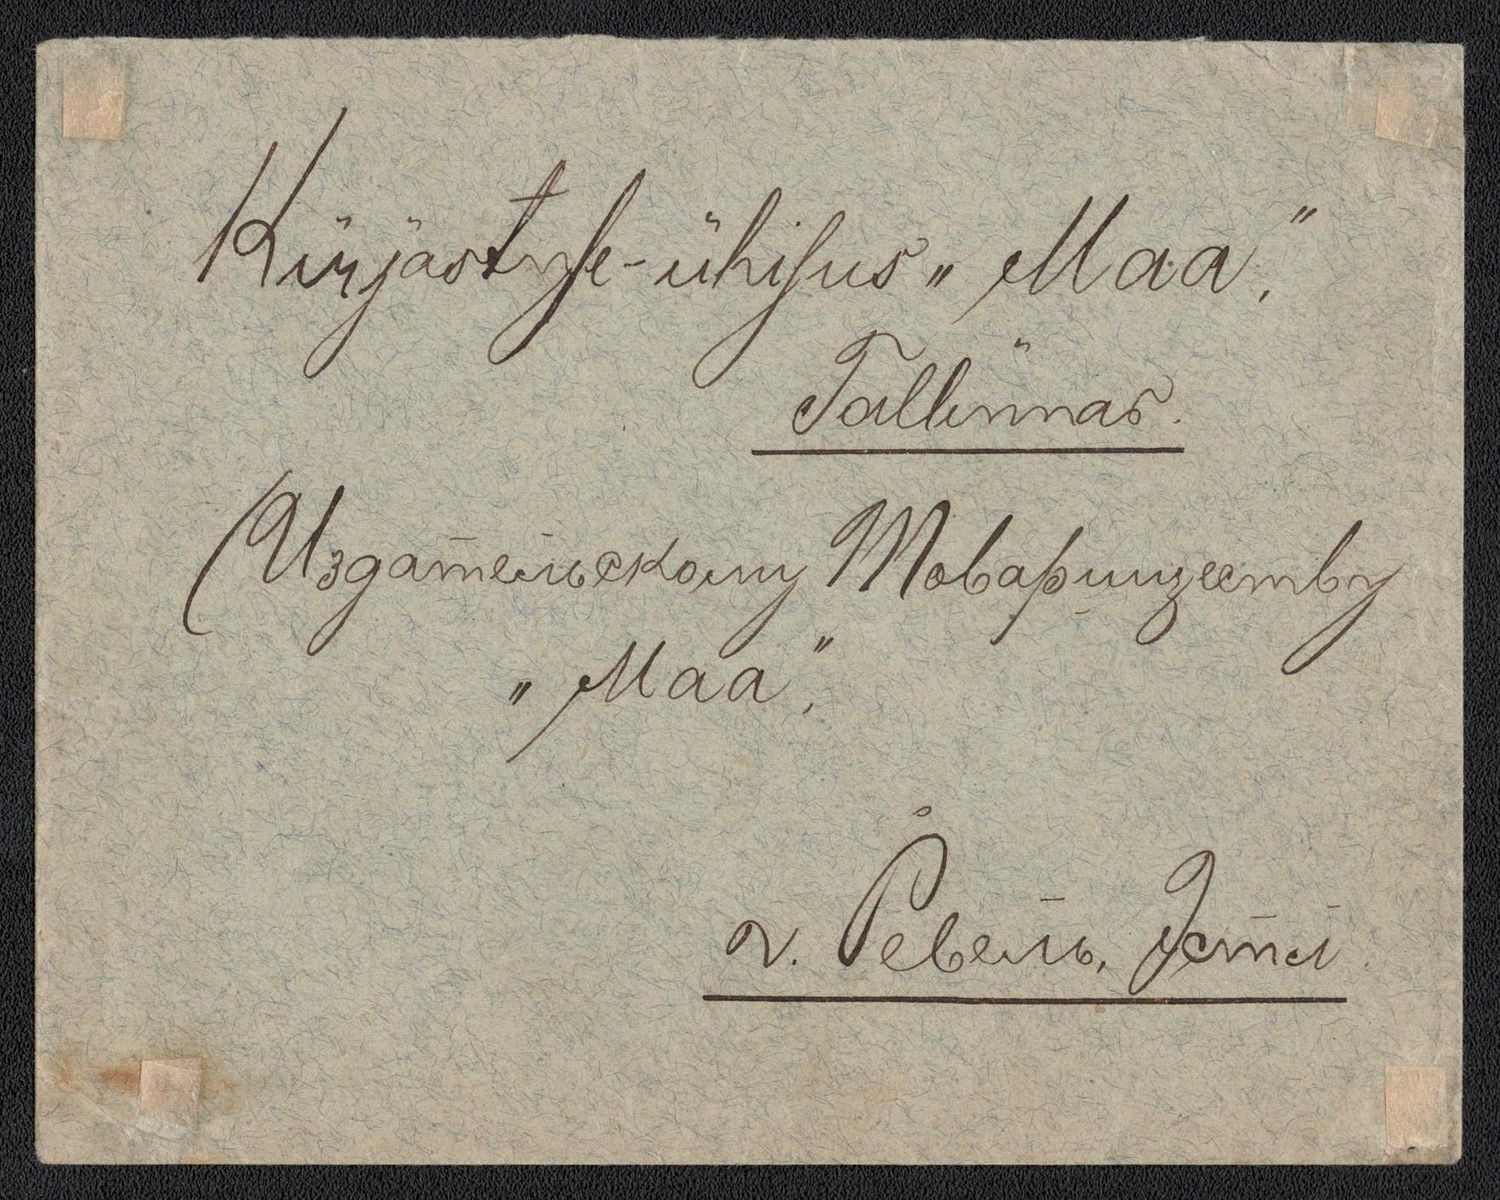 Kirjastuse-ühisus „Maa”.
Tallinnas.
(Издательскому Товариществу
„Маа”.
г. Ревель,